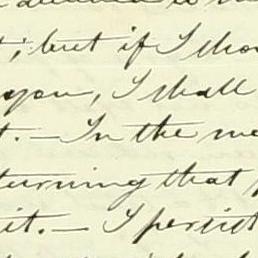 t; but if I shou
you, I shall
t. — In the me
turning that
it. — I persist